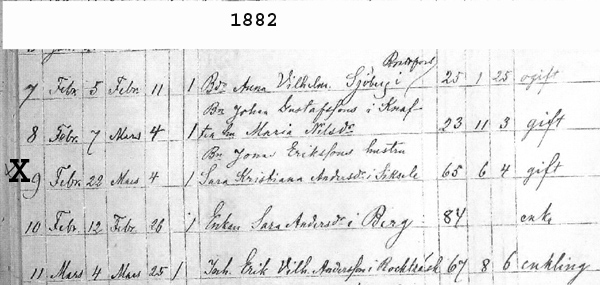 1882
Rossfors
7 Febr. 5 Febr. 11 1 Bdr. Anna Vilhelm. Sjöberg i 25 1 25 ogift
Bn Johan Gustafssons i Knaf-
8 Febr. 7 Mars 4 1 ten hu Maria Nilsdr 23 11 3 gift
Bn Jona Erikssons hustru
X 9 Febr. 22 Mars 4 1 Sara Kristiana Andersdr i Siksele 65 6 4 gift
10 Febr. 12 Febr. 26 1 Enkan Sara Andersdr i Berg 84 enka
11 Mars 4 Mars 25 1 Inh. Erik Vilh. Andersson i Rockträsk 67 8 6 enkling